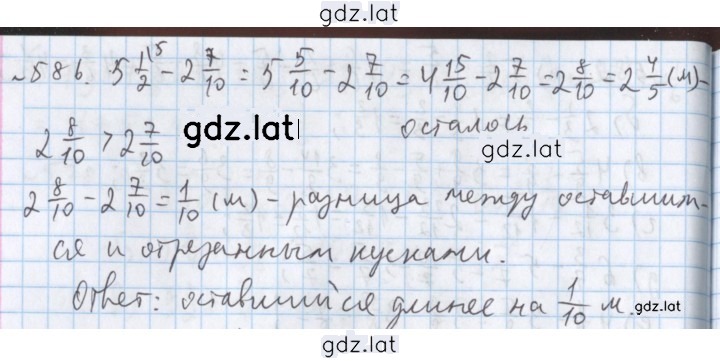 gdz.lat
№586. 5 1/2 \5 - 2 7/10 = 5 5/10 - 2 7/10 = 4 15/10 - 2 7/10 = 2 8/10 = 2 4/5 (м) -
осталось
gdz.lat
2 8/10 > 2 7/10
gdz.lat
2 8/10 - 2 7/10 = 1/10 (м) - разница между оставшим-
ся и отрезанным кусками.
Ответ: оставшийся длинее на 1/10 м.
gdz.lat
gdz.lat